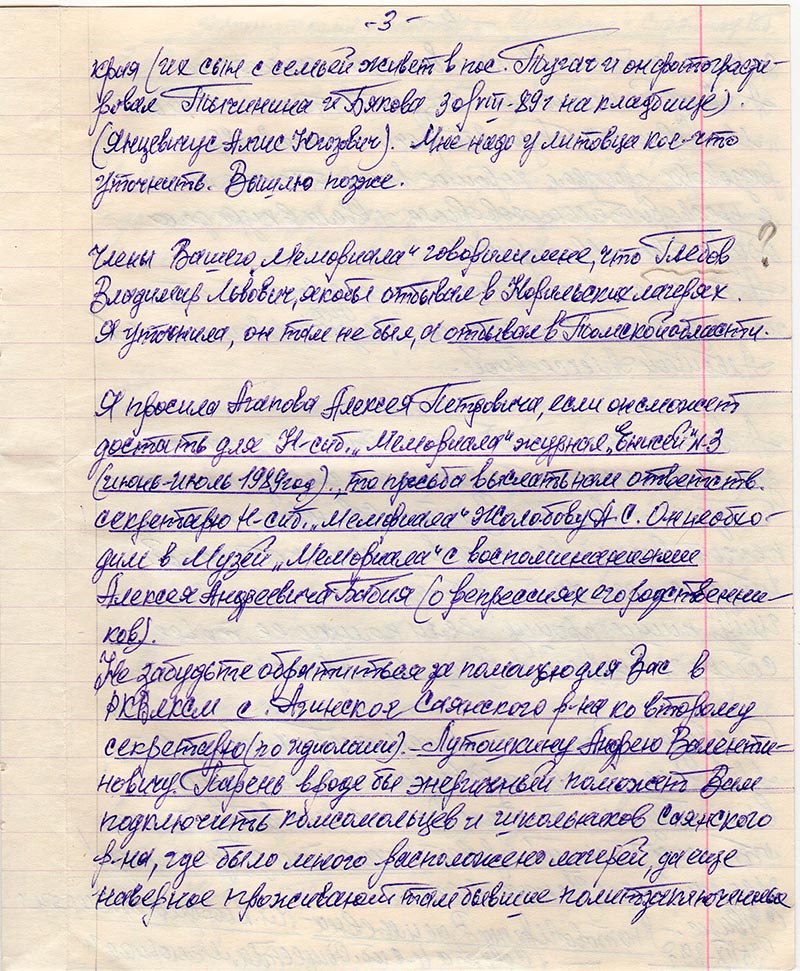 -3-
края (их сын с семьёй живёт в пос. Тугач и он фотографи-
ровал Пычинина и Бякова 3 окт-89г на кладбище).
(Янцевичус Алгис Юозович). Мне надо у литовца кое-что
уточнить. Вышлю позже.
Члены Вашего „Мемориала" говорили мне, что Глебов ?
Владимир Львович, якобы отбывал в Норильских лагерях.
Я уточнила, он там не был, а отбывал в Томской области.
Я просила Агапова Алексея Петровича, если он сможет
достать для Н-сиб. „Мемориала" журнал „Енисей" №3
(июнь-июль 1989 год)., то просьба выслать нам ответств.
секретарю Н-сиб. „Мемориала" Жолобову А.С. Он необхо-
дим в Музей „Мемориала" с воспоминаниями
Алексея Андреевича Бабия (о репрессиях его родственни-
ков).
Не забудьте обратиться за помощью для Вас в
РКВЛКСМ с. Агинское Саянского р-на ко второму
секретарю (по идиологии). - Лутошкину Андрею Валенти-
новичу. Парень вроде бы энергичный поможет Вам
подключить комсомольцев и школьников Саянского
р-на, где было много расположено лагерей, да еще
наверное проживают там бывшие политзаключенные